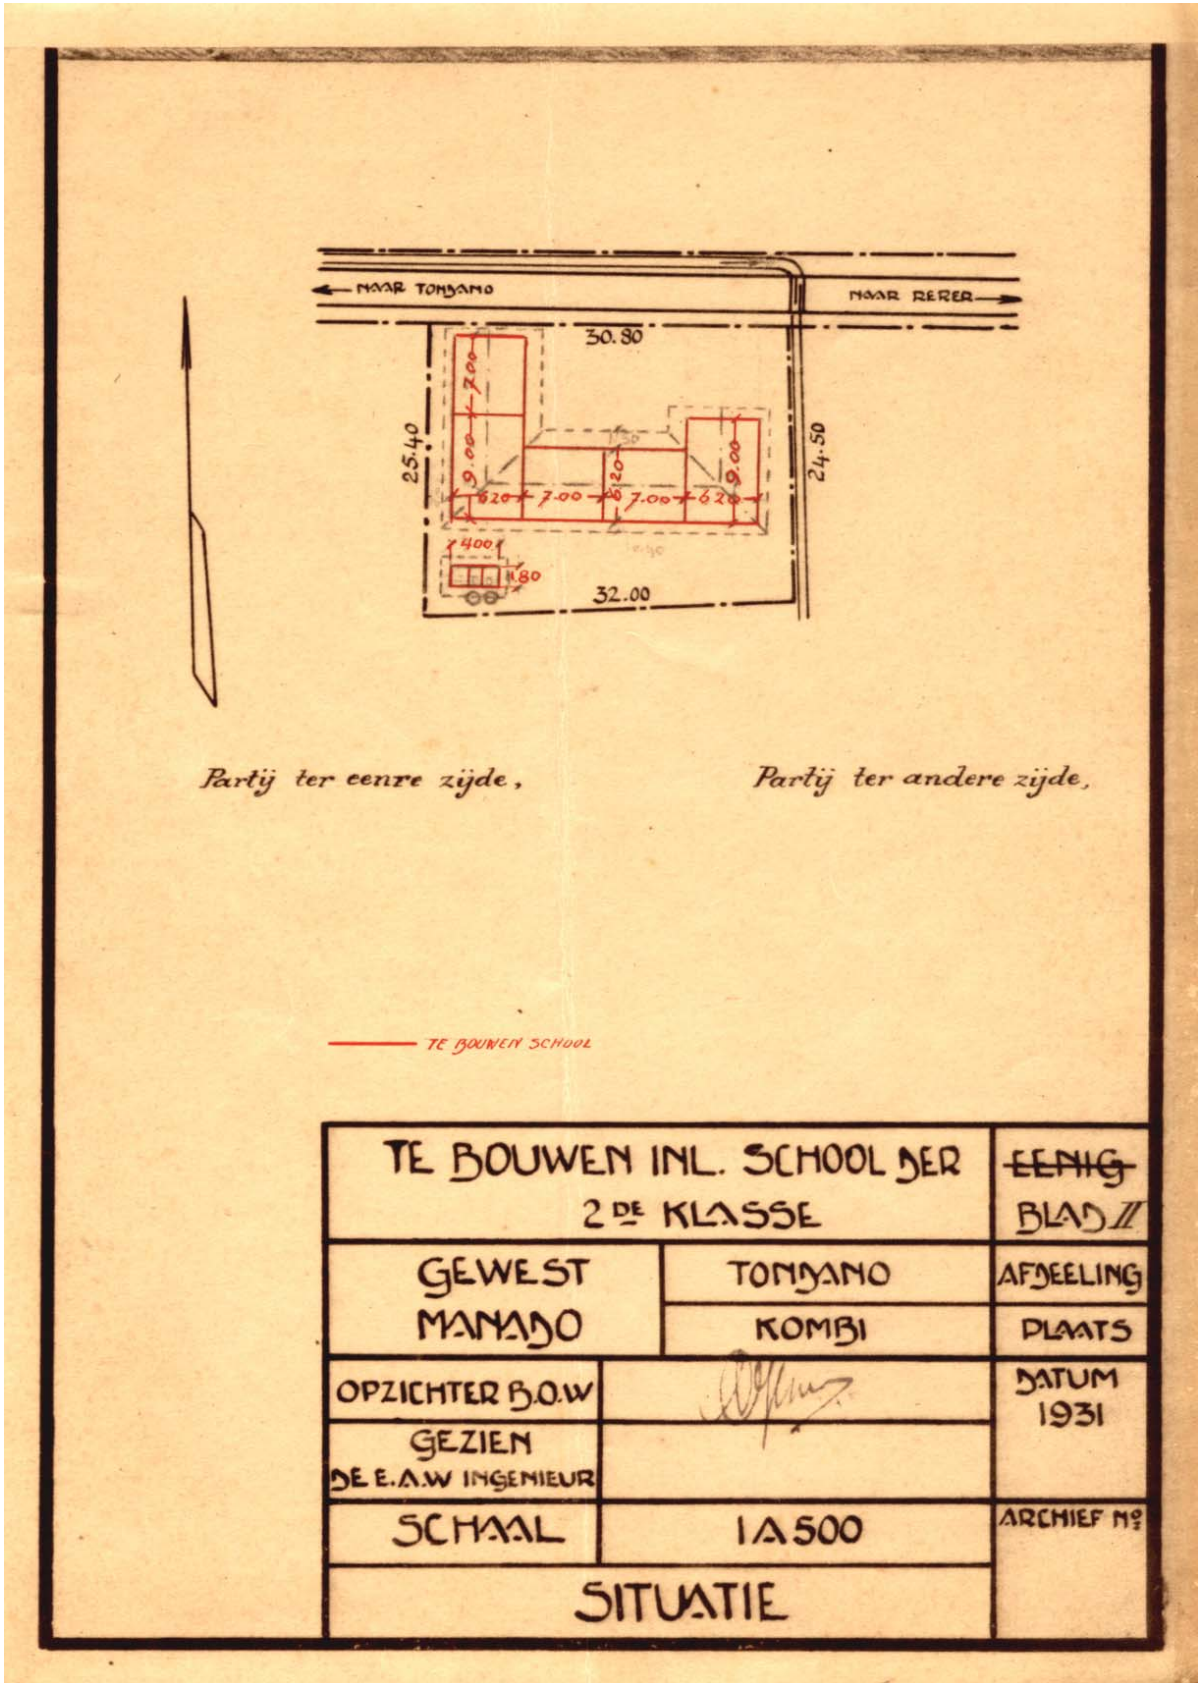 NAAR TONDANO
NAAR RERER
30.80
25.40
24.50
7.00
9.00
9.00
1.50
6.20
620
7.00
7.00
620
400
1.80
32.00
Partij ter eenre zijde,
Partij ter andere zijde,
TE BOUWEN SCHOOL
TE BOUWEN INL. SCHOOL DER
2DE KLASSE
EENIG
BLAD II
GEWEST
MANADO
TONDANO
AFDEELING
KOMBI
PLAATS
OPZICHTER B.O.W
DATUM
1931
GEZIEN
DE E.A.W INGENIEUR
SCHAAL
1 A 500
ARCHIEF No
SITUATIE